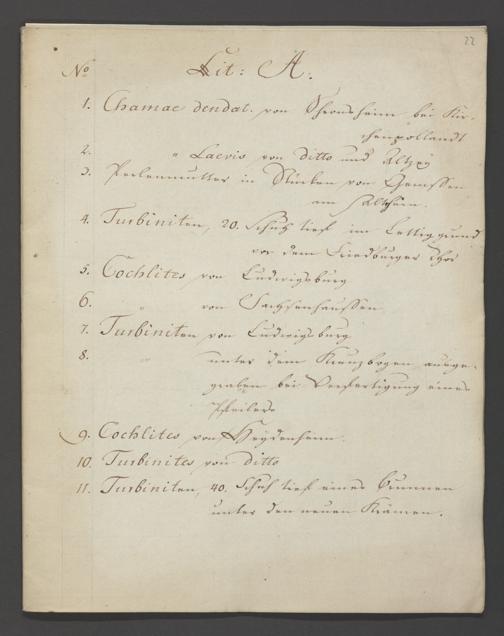 22
No Lit: A.
1. Chamae dendal. von Flonsheim bei Kir-
chenpollandt
2. " Laevis von ditto und Altzey
3. Perlenmutter in Stücken von Gemssen
am Altrhein.
4. Turbiniten, 20. Schuh tief im Lettiggrund
vor dem Friedburger Thor
5. Cochlites von Ludwigsburg
6. " von Sachsenhaussen
7. Turbiniten von Ludwigsburg
8. " unter dem Kreuzbogen ausge-
graben bei Verfertigung eines
Pfeilers
9. Cochlites, von Heydenheim.
10. Turbinites, von ditto
11. Turbiniten, 40. Schuh tief eines Brunnen
unter den neuen Krämen.